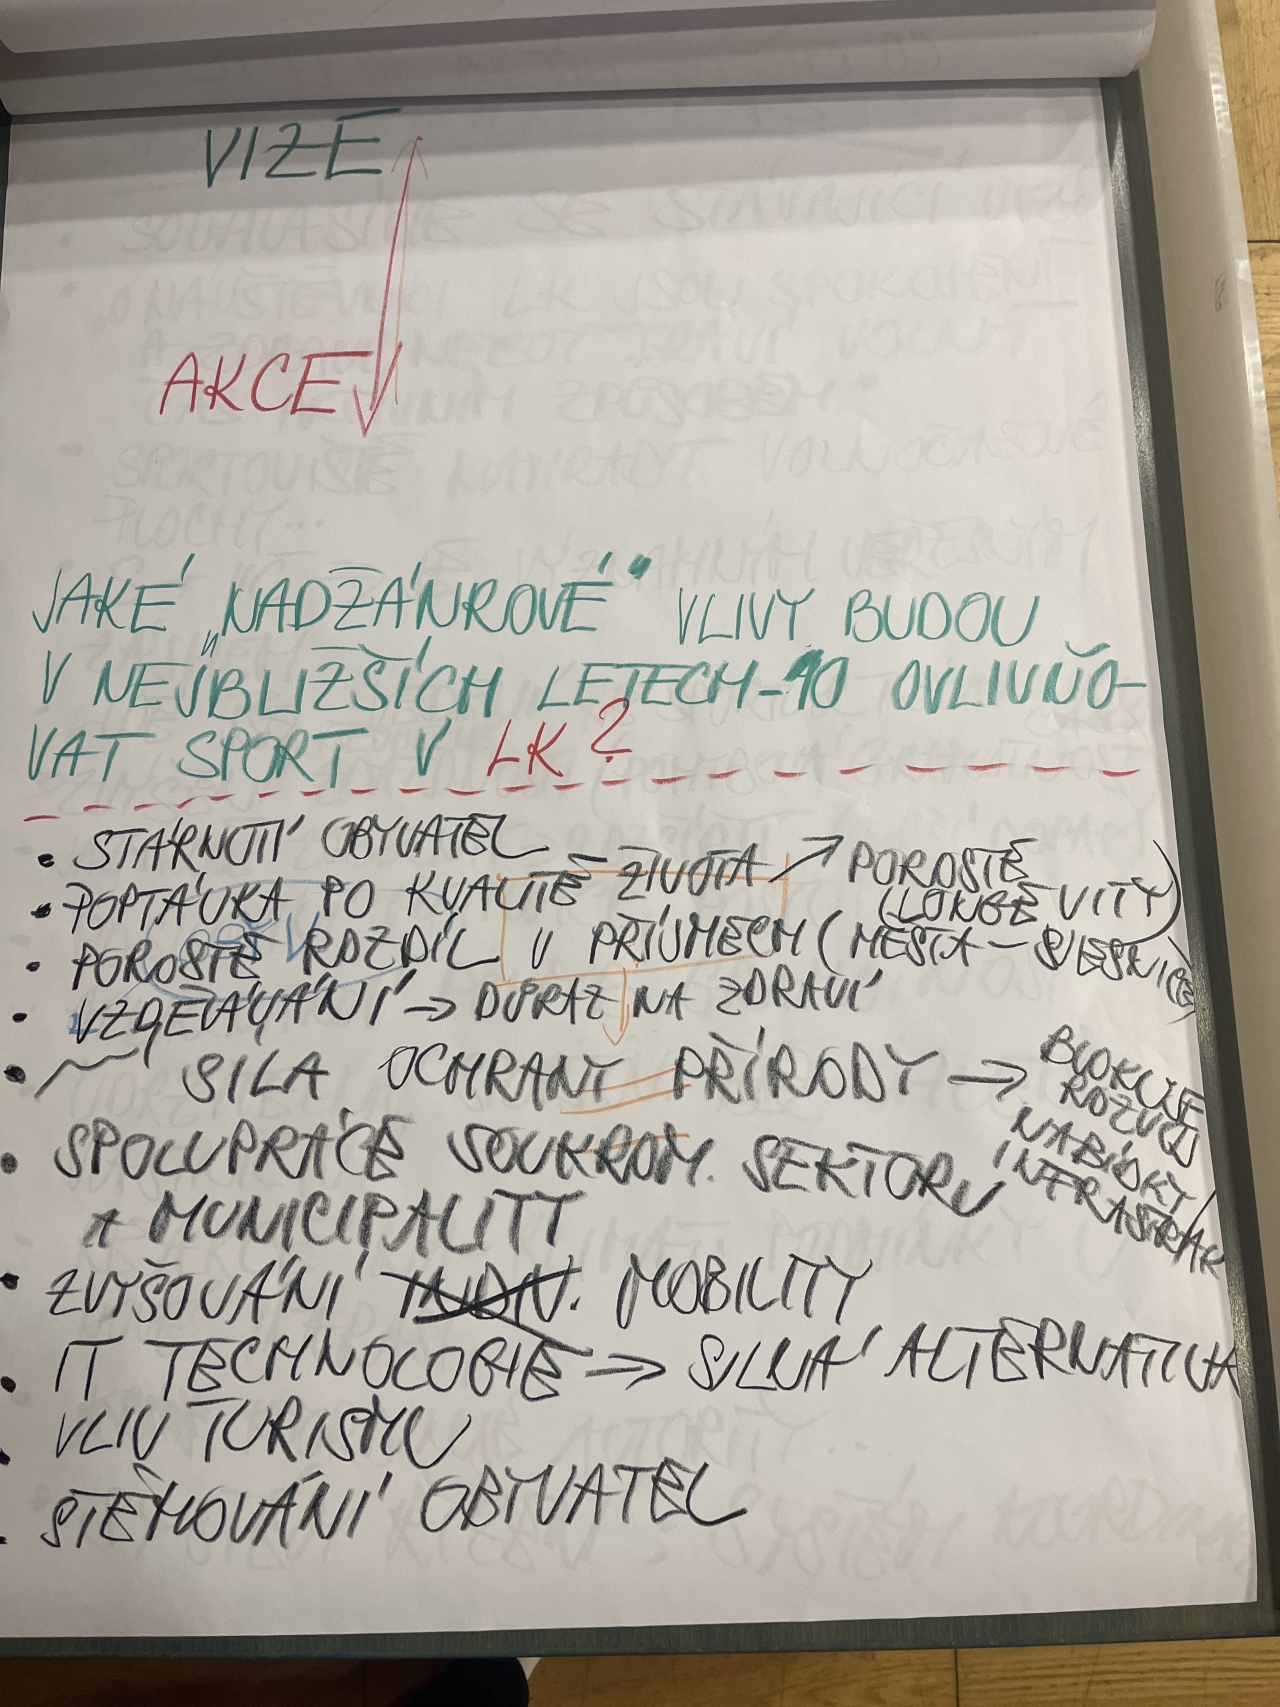 VIZE
AKCE
JAKÉ „NADŽÁNROVÉ" VLIVY BUDOU
V NEJBLIŽŠÍCH LETECH-10 OVLIVŇO-
VAT SPORT V LK?
• STÁRNUTÍ OBYVATEL
• POPTÁVKA PO KVALITĚ ŽIVOTA ↗ POROSTE
(LONGEVITY)
• POROSTE ROZDÍL V PŘÍJMECH (MĚSTA -
• VZDĚLÁVÁNÍ → DŮRAZ NA ZDRAVÍ
• SÍLA OCHRANY PŘÍRODY → BLOKUJE
ROZVOJ
NABÍDKY/
INFRASTRUK
• SPOLUPRÁCE SOUKROM. SEKTORU
A MUNICIPALIT
• ZVYŠOVÁNÍ INDIV. MOBILITY
• IT TECHNOLOGIE → SILNÁ ALTERNATIVA
• VLIV TURISMU
• STĚHOVÁNÍ OBYVATEL